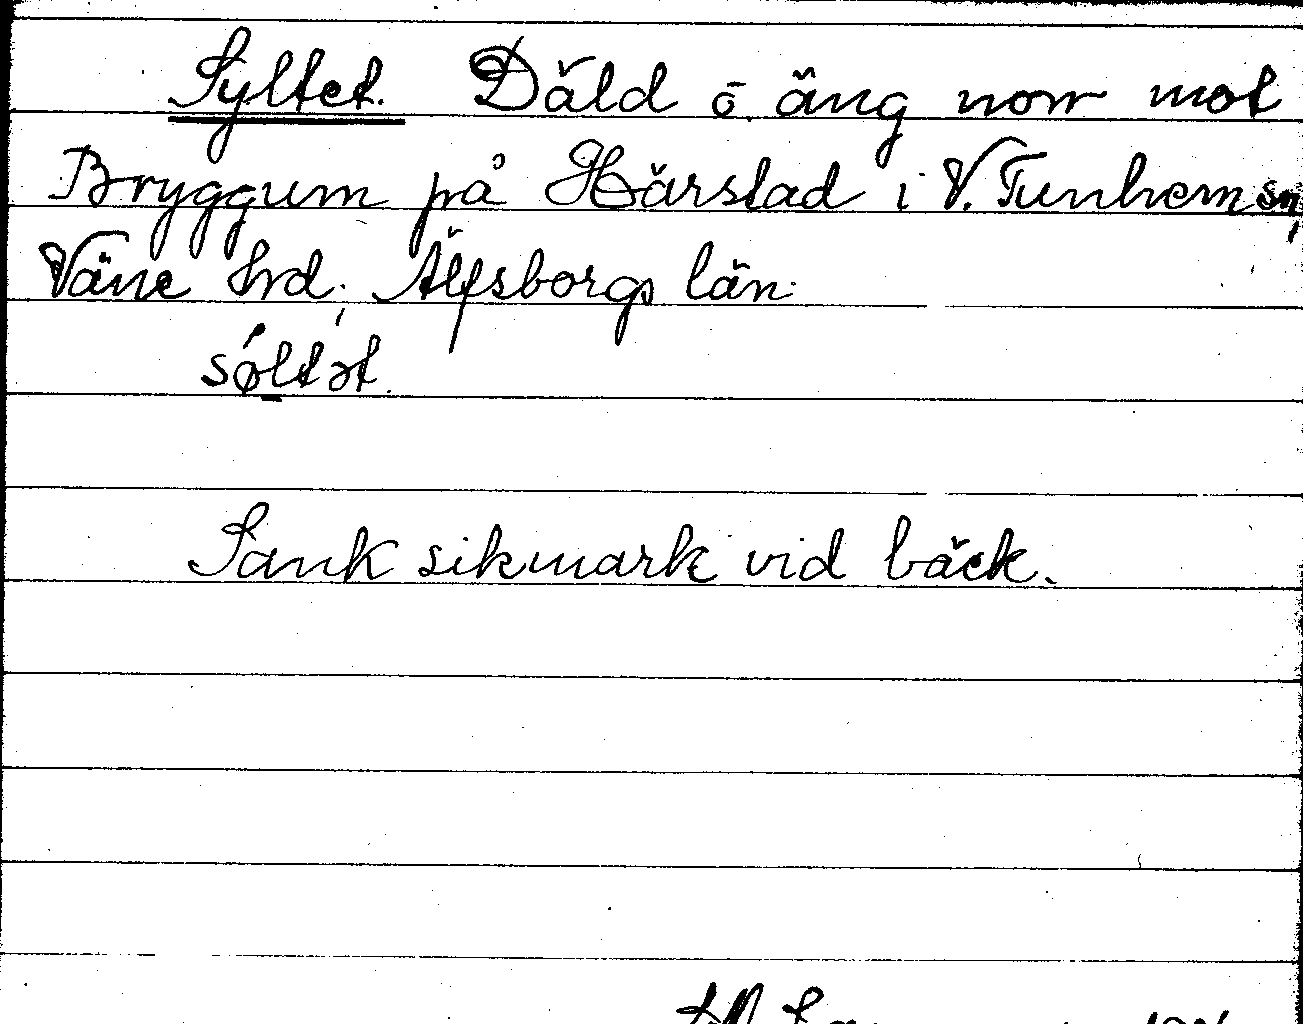 Syltet. Däld o. äng norr mot
Bryggum på Härstad i V. Tunhem sn,
Väne hrd, Älfsborgs län.
sø̀ltət.
Sank sikmark vid bäck.